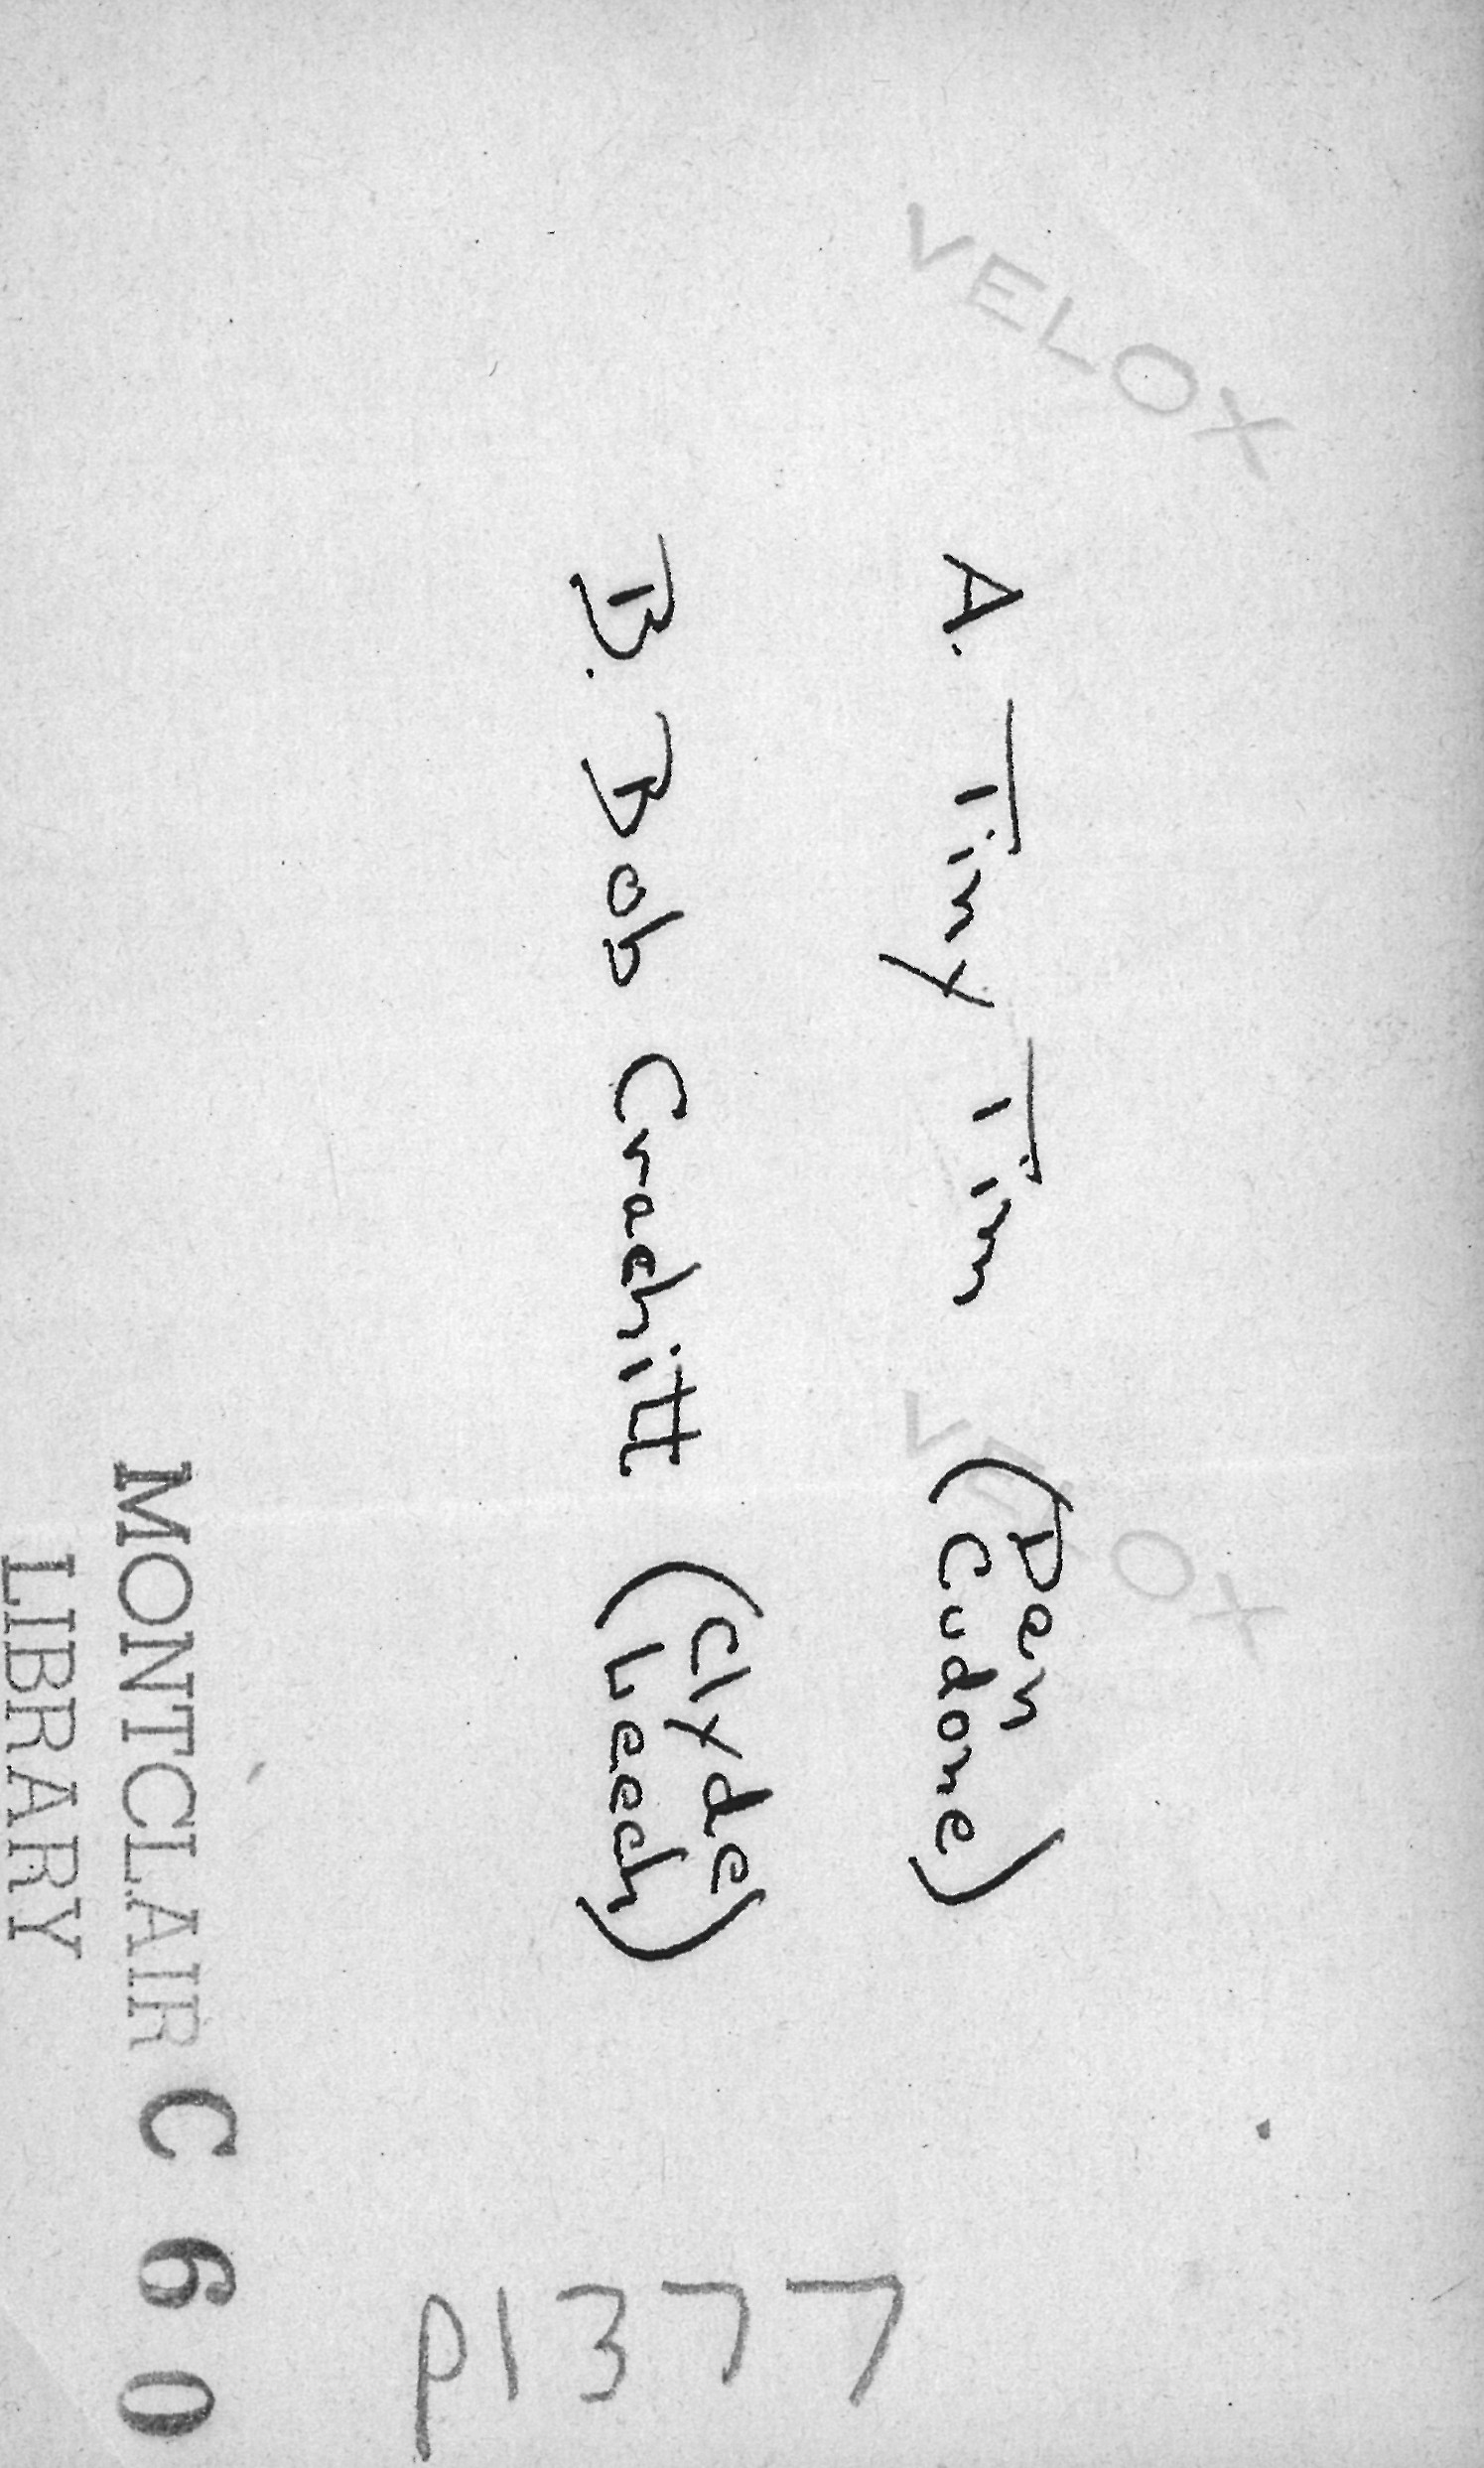 VELOX
VELOX
A. Tiny Tim (Dan
Cudone)
B. Bob Crachitt (Clyde
Leech)
MONTCLAIR
LIBRARY
C 60
P1377